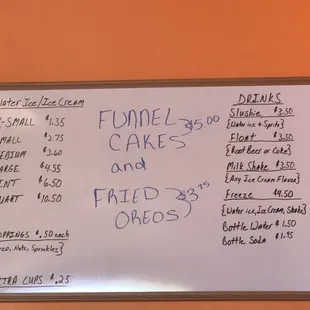 Water Ice/Ice Cream
X-SMALL $1.35
SMALL $2.75
MEDIUM $3.60
LARGE $4.55
PINT $6.50
QUART $10.50
TOPPINGS $.50 each
{Oreo, Nuts, Sprinkles}
EXTRA CUPS $.25
FUNNEL
CAKES $5.00
and
FRIED
OREOS $3.75
DRINKS
Slushie $3.50
{Water ice & Sprite}
Float $3.50
{Root Beer or Coke}
Milk Shake $3.50
{Any Ice Cream Flavor}
Freeze $4.50
{Water ice, Ice Cream, Shake}
Bottle Water $1.50
Bottle Soda $1.95